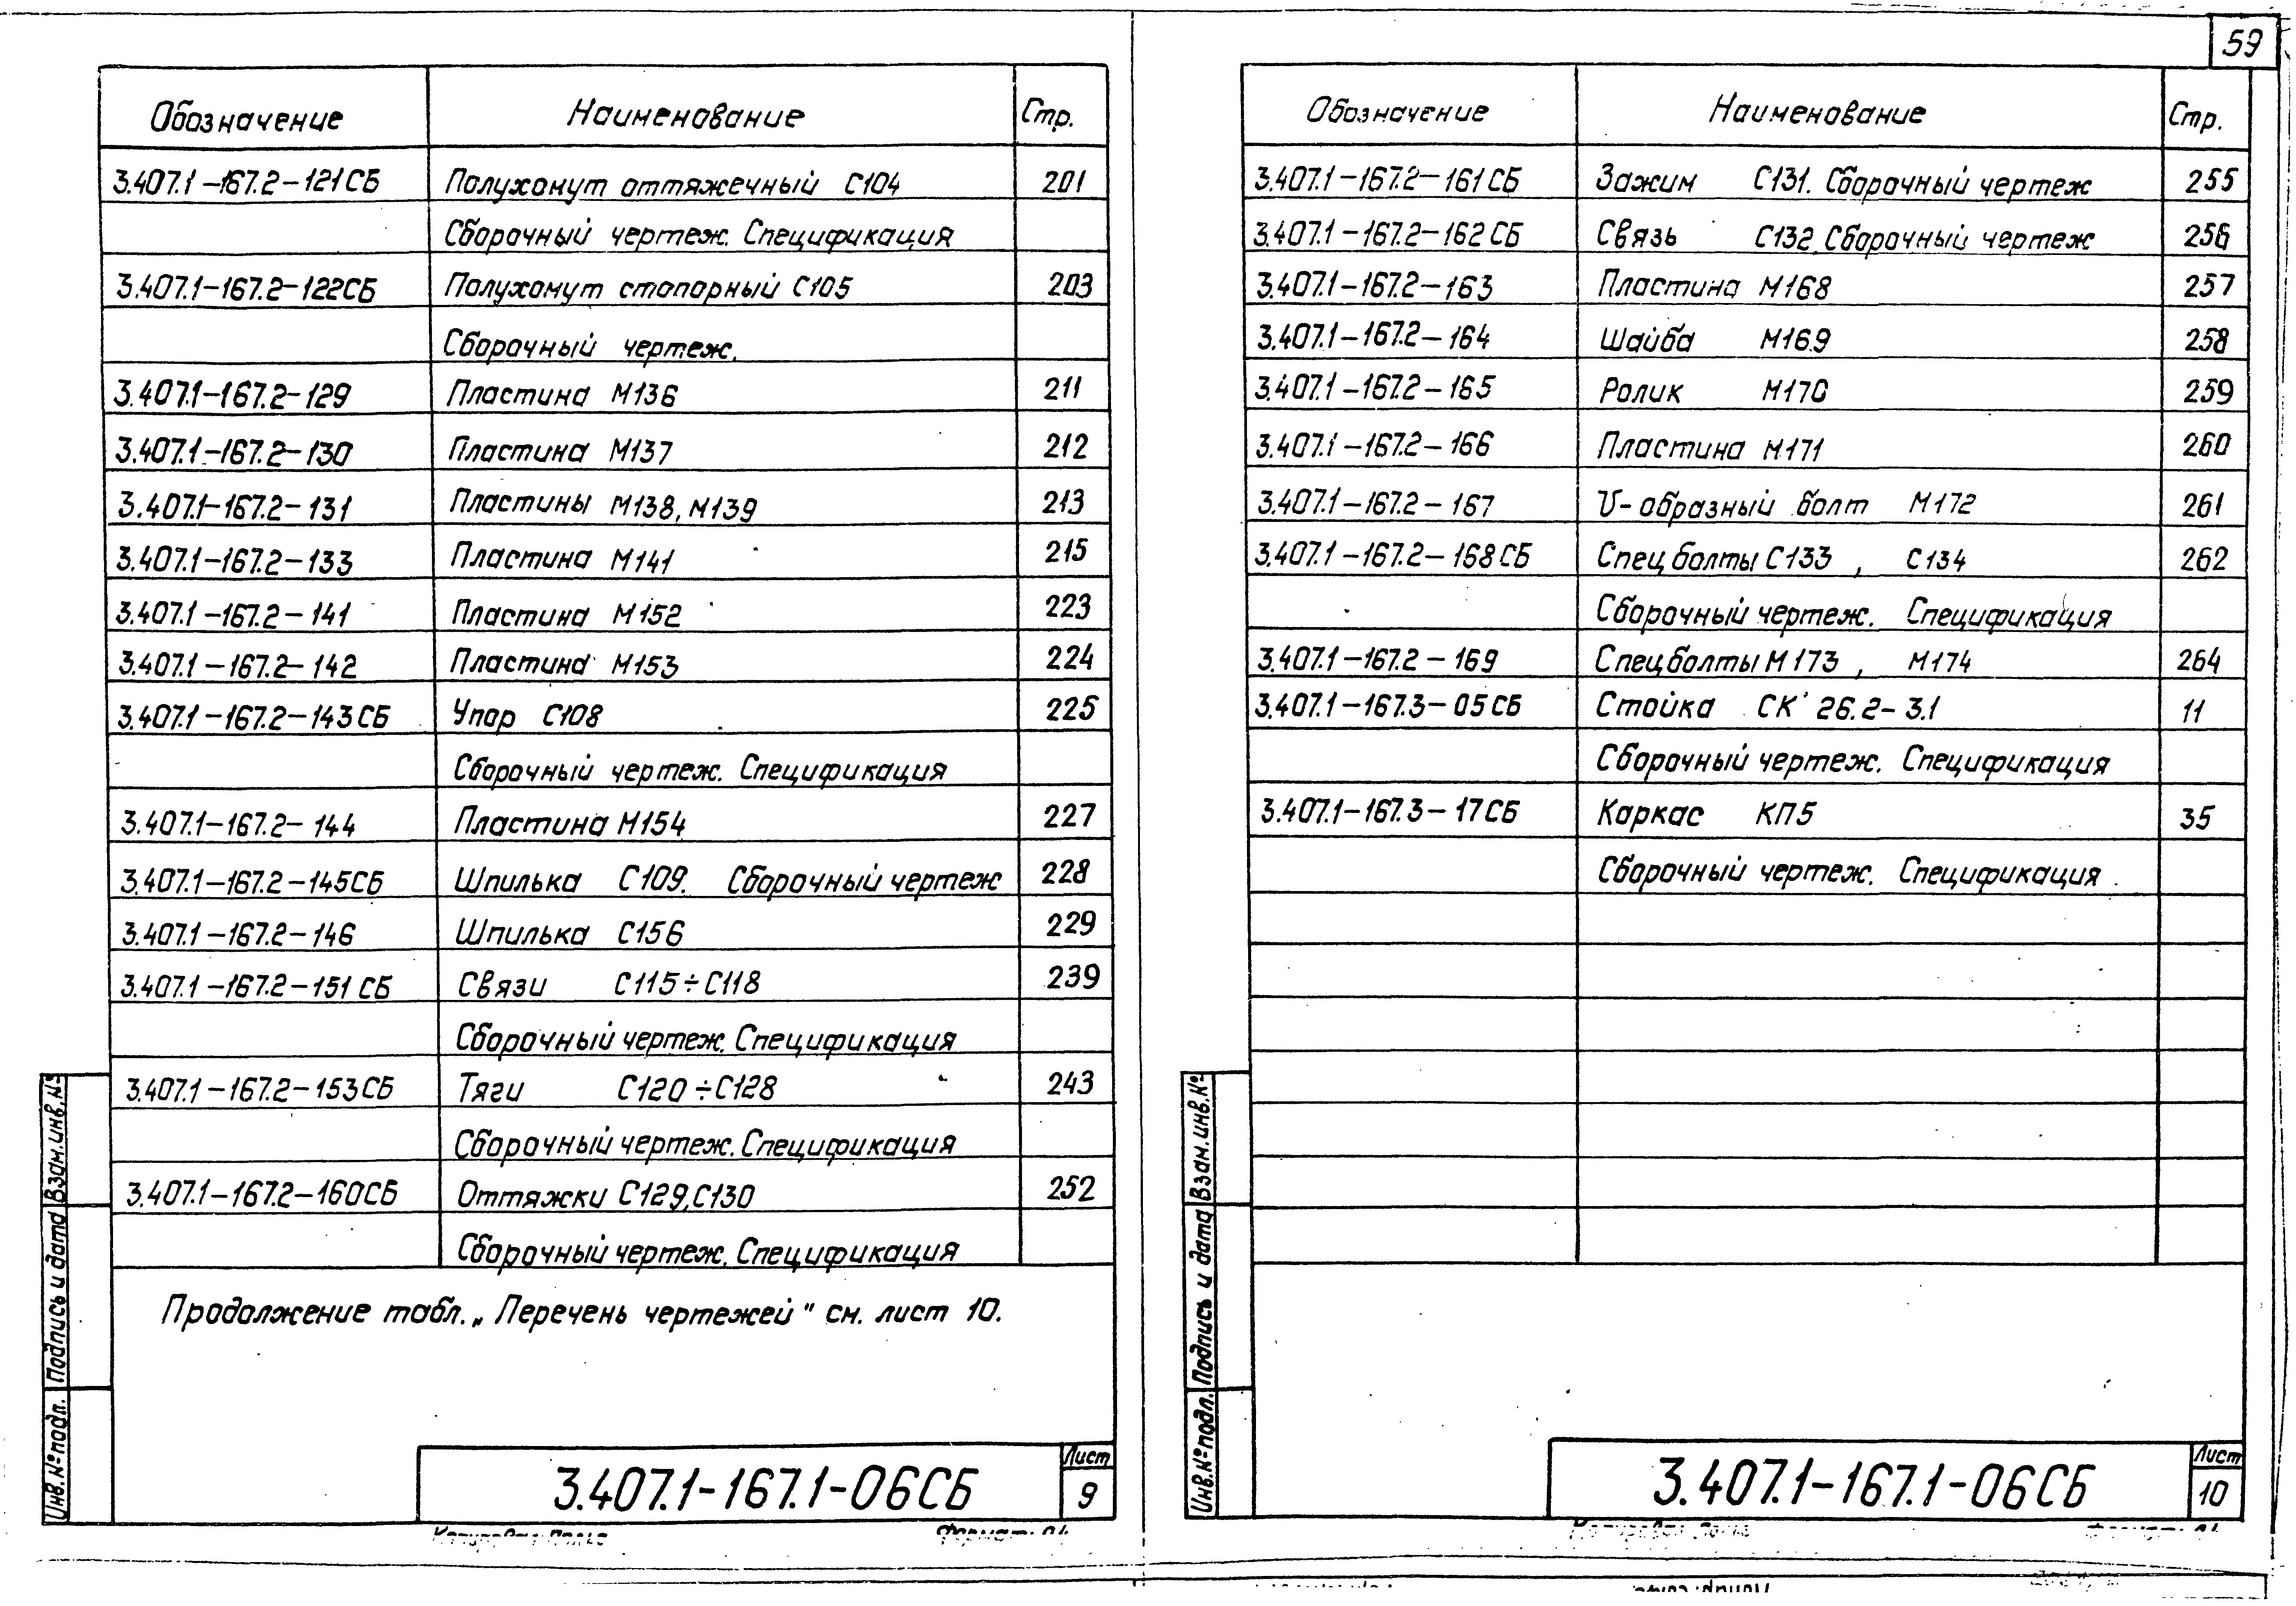 59
Обозначение Наименование Стр.
3.407.1-167.2-121СБ Полухомут оттяжечный С104 201
Сборочный чертеж. Спецификация
3.407.1-167.2-122СБ Полухомут стопорный С105 203
Сборочный чертеж.
3.407.1-167.2-129 Пластина М136 211
3.407.1-167.2-130 Пластина М137 212
3.407.1-167.2-131 Пластины М138, М139 213
3.407.1-167.2-133 Пластина М141 215
3.407.1-167.2-141 Пластина М152 223
3.407.1-167.2-142 Пластина М153 224
3.407.1-167.2-143СБ Упор С108 225
Сборочный чертеж. Спецификация
3.407.1-167.2-144 Пластина М154 227
3.407.1-167.2-145СБ Шпилька С109. Сборочный чертеж 228
3.407.1-167.2-146 Шпилька С156 229
3.407.1-167.2-151СБ Связи С115÷С118 239
Сборочный чертеж. Спецификация
3.407.1-167.2-153СБ Тяги С120÷С128 243
Сборочный чертеж. Спецификация
3.407.1-167.2-160СБ Оттяжки С129, С130 252
Сборочный чертеж. Спецификация
Продолжение табл. „Перечень чертежей" см. лист 10.
Инв.№подл. Подпись и дата Взам.инв.№
3.407.1-167.1-06СБ
Лист
9
Обозначение Наименование Стр.
3.407.1-167.2-161СБ Зажим С131. Сборочный чертеж 255
3.407.1-167.2-162СБ Связь С132. Сборочный чертеж 256
3.407.1-167.2-163 Пластина М168 257
3.407.1-167.2-164 Шайба М169 258
3.407.1-167.2-165 Ролик М170 259
3.407.1-167.2-166 Пластина М171 260
3.407.1-167.2-167 U-образный болт М172 261
3.407.1-167.2-168СБ Спец болты С133 , С134 262
Сборочный чертеж. Спецификация
3.407.1-167.2-169 Спец болты М173 , М174 264
3.407.1-167.3-05СБ Стойка СК 26.2-3.1 11
Сборочный чертеж. Спецификация
3.407.1-167.3-17СБ Каркас КП5 35
Сборочный чертеж. Спецификация
Инв.№подл. Подпись и дата Взам.инв.№
3.407.1-167.1-06СБ
Лист
10